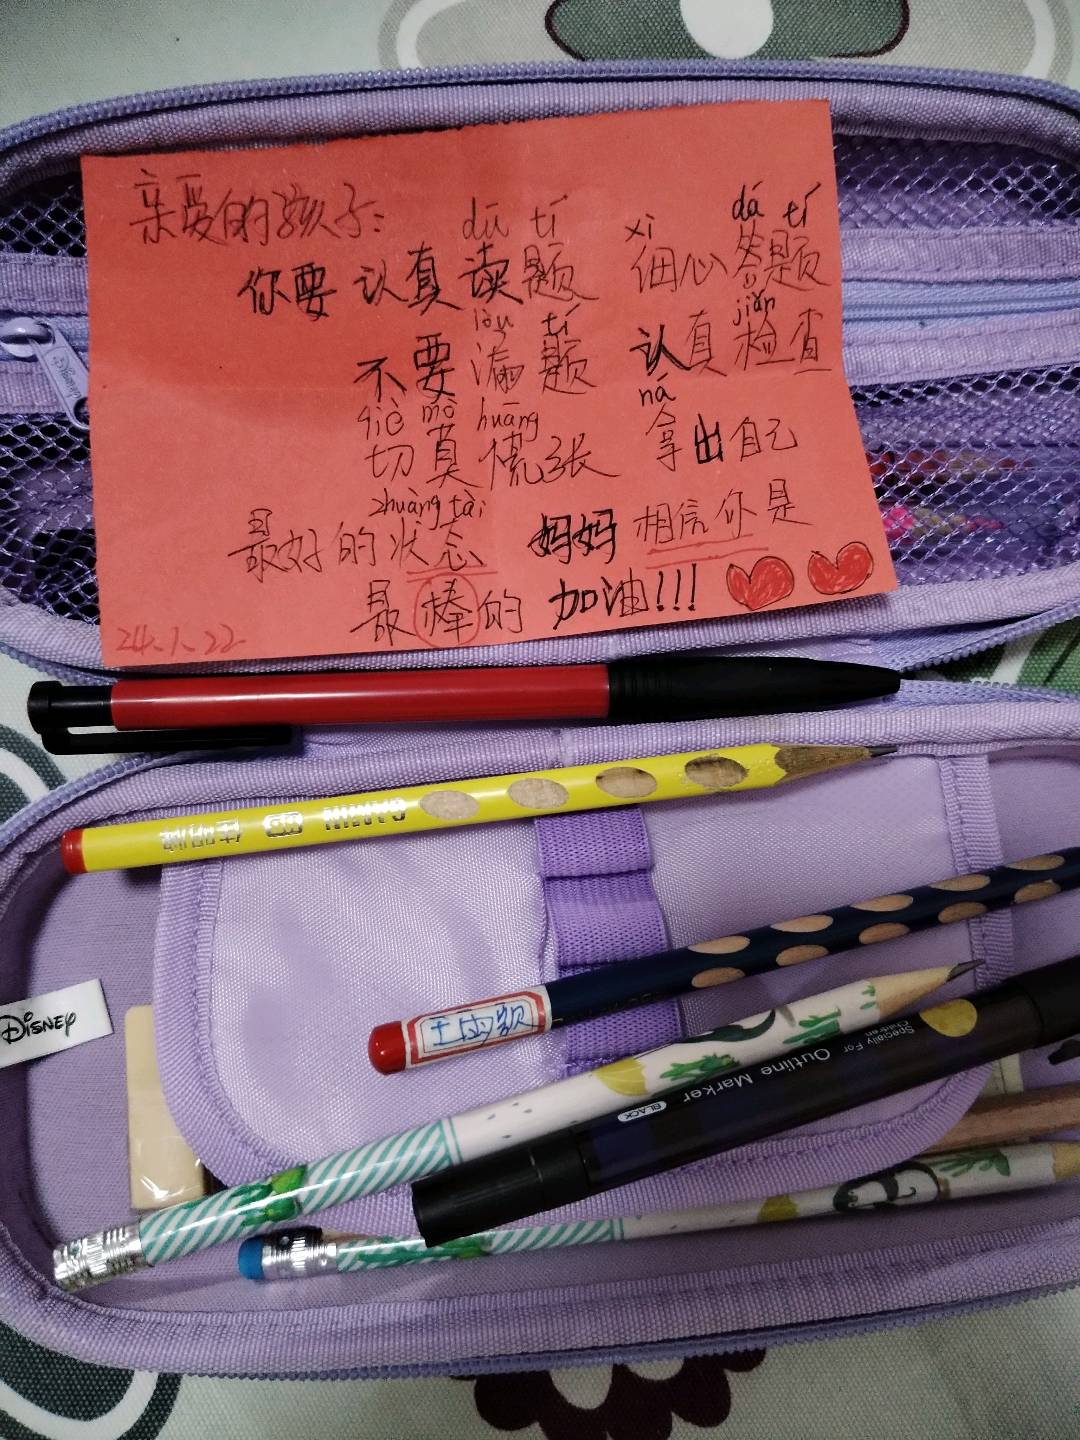 亲爱的孩子：
dú tí xì dá tí
你要认真读题 细心答题
lòu tí jiǎn
不要漏题 认真检查
qiè mò huāng ná
切莫慌张 拿出自己
zhuàng tài
最好的状态 妈妈相信你是
最棒的 加油!!!
24.1.22
佳品汇 GANMIN
Disney
Specially For Children
Outline Marker
BLACK